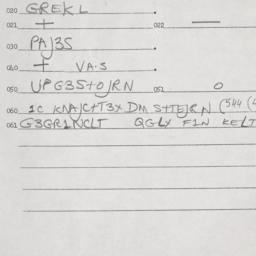 020 GREKL
021 + 022 —
030 PAJ3S
040 + VA-S
050 UPG3S+OJRN 052 O
060 1C KNAJC+T3X DM S++EJRN (544
061 G3GR1NCLT QGLY F1N KELT